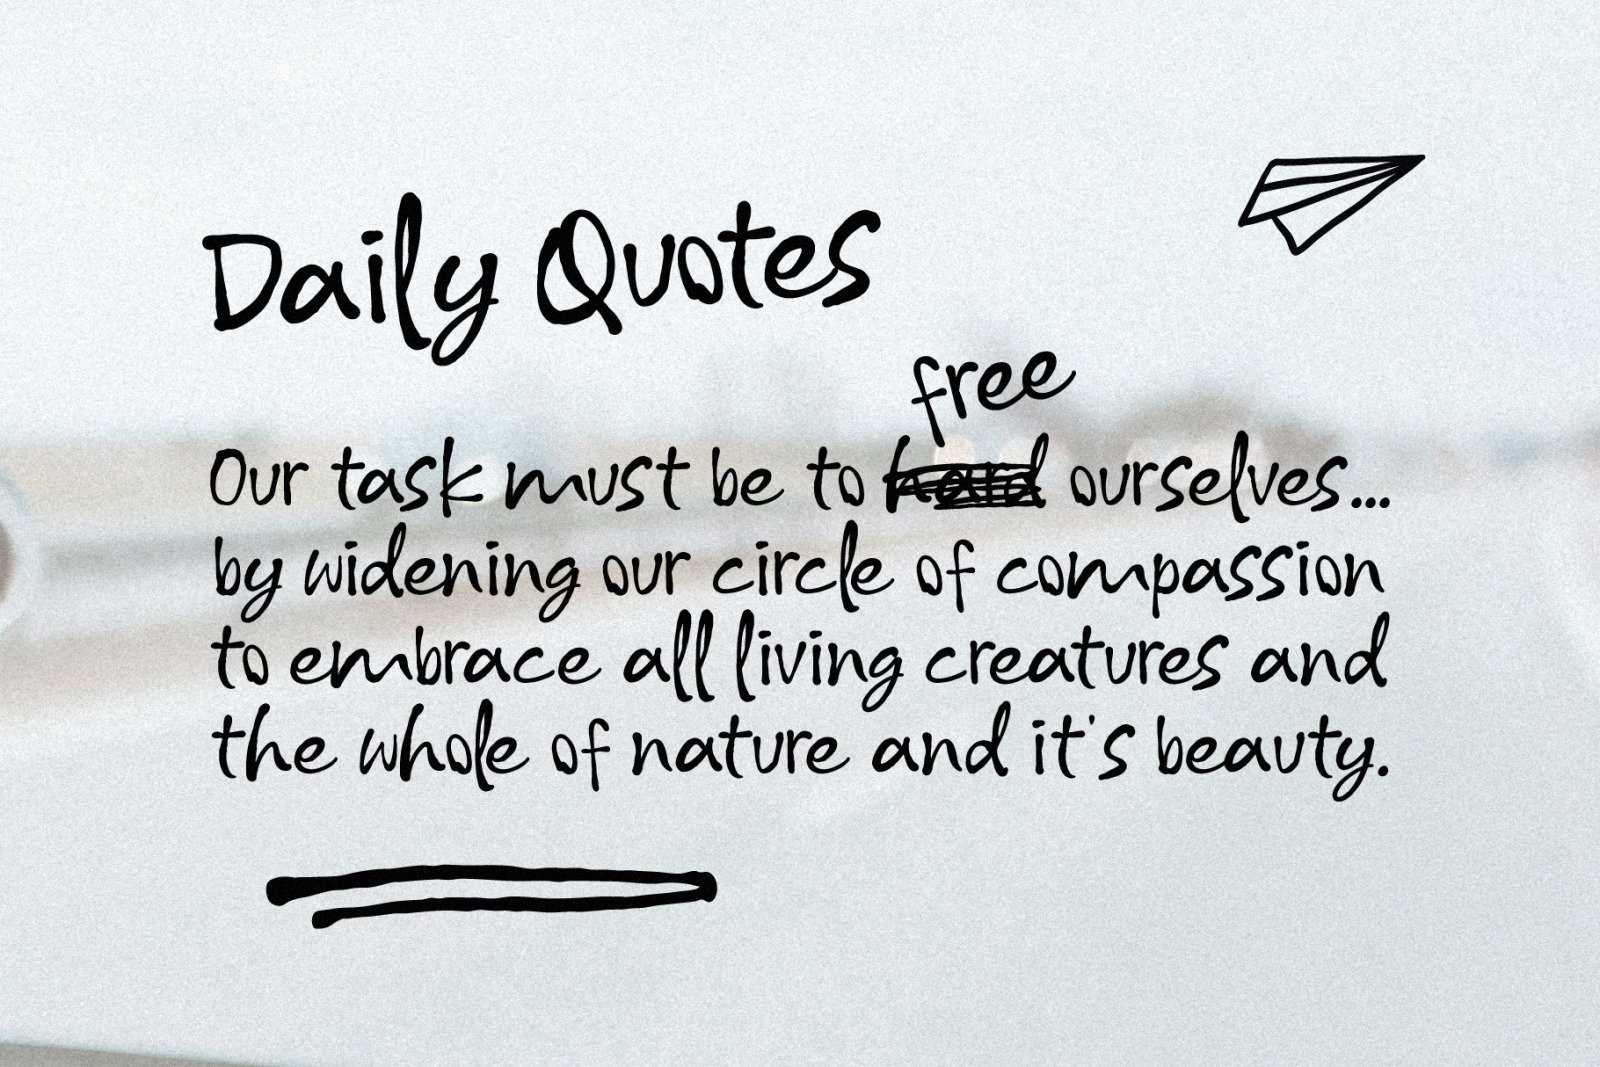 Daily Quotes
free
Our task must be to hard ourselves...
by widening our circle of compassion
to embrace all living creatures and
the whole of nature and it's beauty.